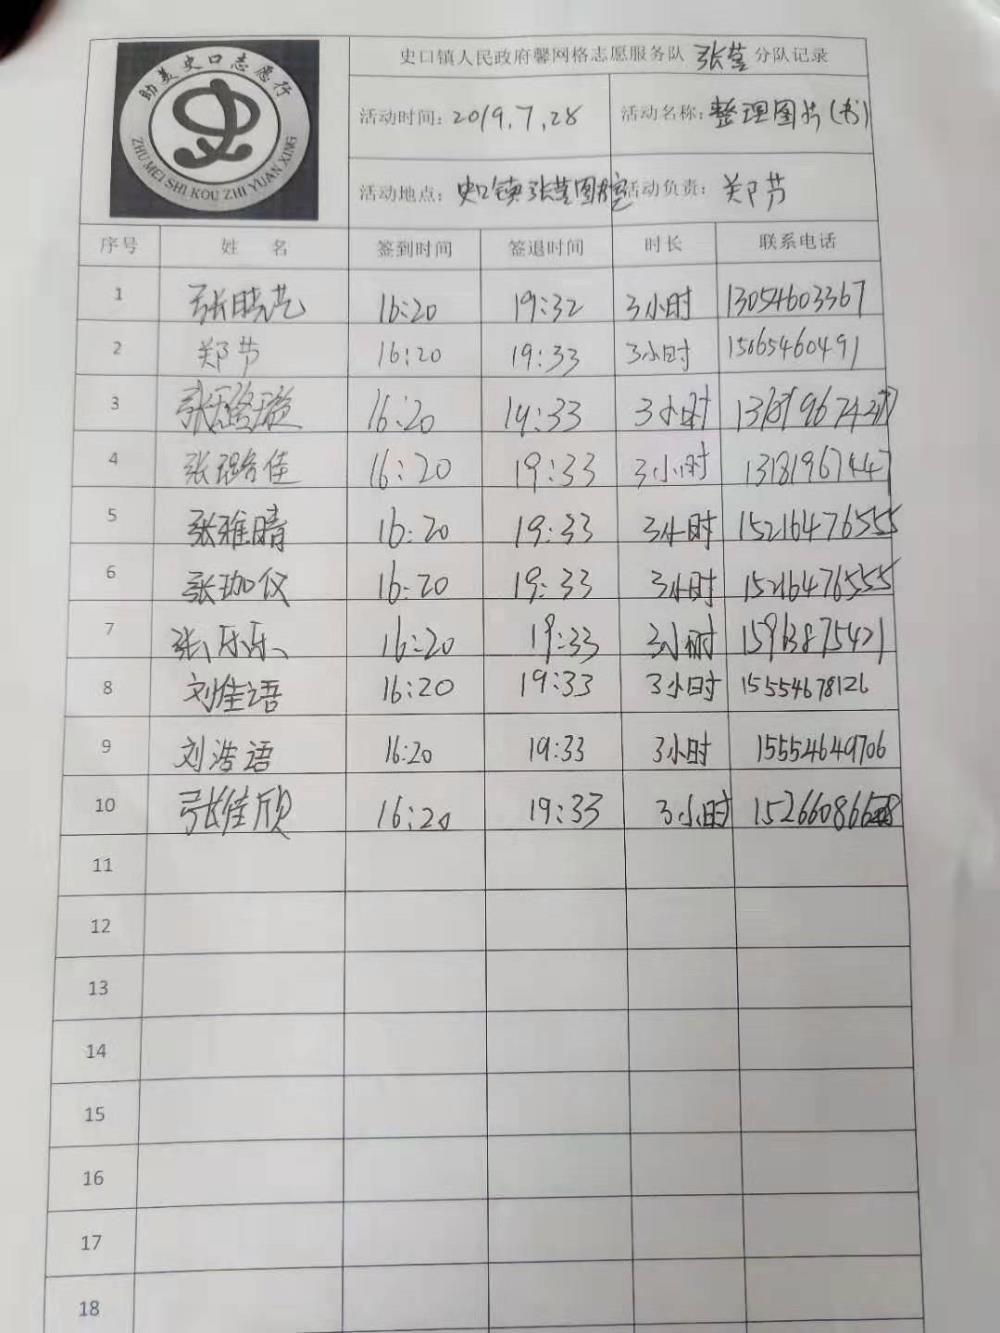 助美史口志愿行
ZHU MEI SHI KOU ZHI YUAN XING
史口镇人民政府馨网格志愿服务队 张茔 分队记录
活动时间：2019.7.28 活动名称：整理图书(书)
活动地点：史口镇张茔图 活动负责：郑节
序号 姓 名 签到时间 签退时间 时长 联系电话
1 张晓艺 16:20 19:32 3小时 13054603367
2 郑节 16:20 19:33 3小时 15065460491
3 张璐璇 16:20 19:33 3小时
4 张璐佳 16:20 19:33 3小时 13181967447
5 张雅晴 16:20 19:33 3小时 15216476555
6 张珈仪 16:20 19:33 3小时 15216476555
7 张乐乐 16:20 19:33 3小时 15963875421
8 刘佳语 16:20 19:33 3小时 15554678126
9 刘浩语 16:20 19:33 3小时 15554649706
10 张佳欣 16:20 19:33 3小时
11
12
13
14
15
16
17
18